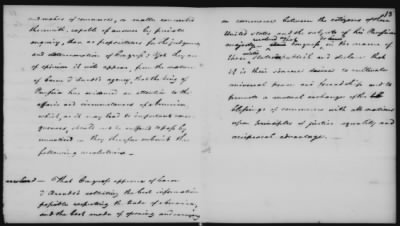 and makes of commerce, or matters connected
therewith, capable of answers by private
enquiry, than as propositions for the judgment
and determination of Congress. Yet they are
of opinion it will appear, from the matter
of Baron d'Arendt's agency, that the King of
Prussia has evidenced an attention to the
affairs and circumstances of America
which, as it may lead to important conse-
quences, should not be suffered to pass by
unnoticed — they therefore submit the
following resolutions —
resolved — That Congress approve of Baron
d'Arendt's collecting the best information
possible respecting the trade of America,
and the best mode of opening and carrying
13
on commerce between the citizens of these
United States and the subjects of his Prussian
majesty — Congress, in the name of
these United States
it is their sincere desire to cultivate
universal peace and friendship and to
promote a mutual exchange of the
blessings of commerce with all nations
upon principles of justice equality and
reciprocal advantage. —